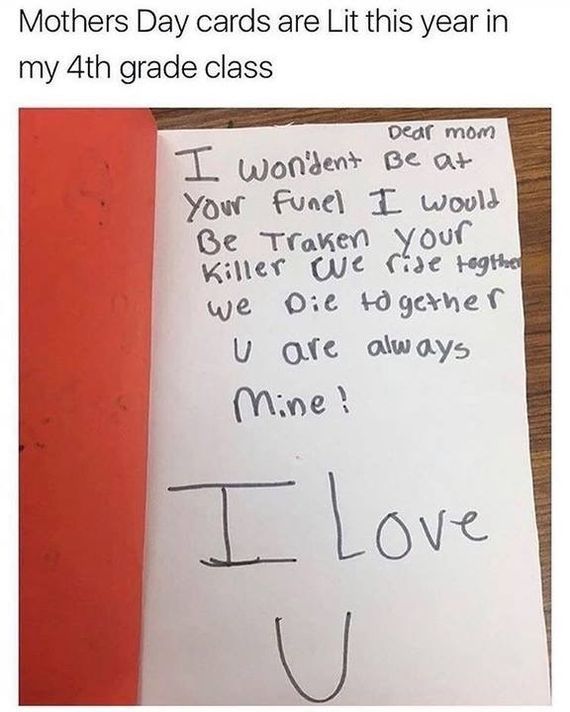 Mothers Day cards are Lit this year in
my 4th grade class
Dear mom
I won'dent Be at
Your Funel I would
Be Traken Your
Killer we ride togther
we Die together
U are always
Mine!
I Love
U